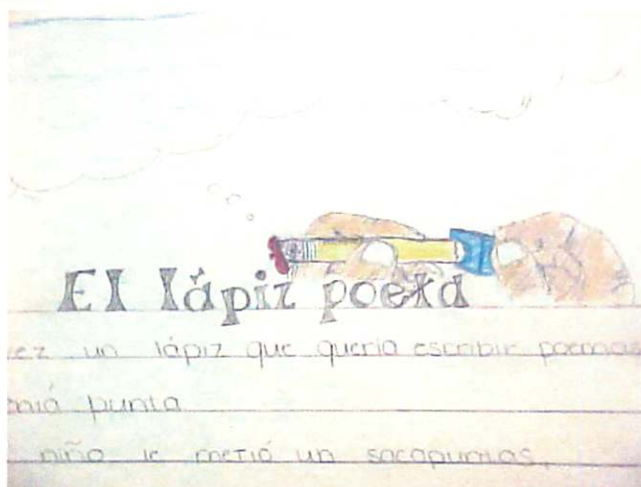 El lápiz poeta
ez un lápiz que quería escribir poemas
enía punta
niño le metió un sacapuntas,